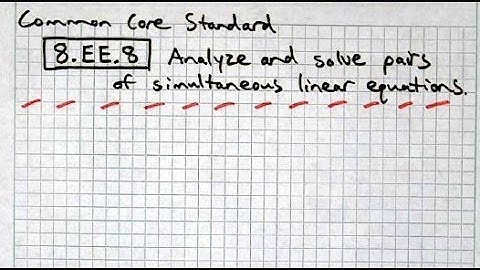 Common Core Standard
8.EE.8 Analyze and solve pairs
of simultaneous linear equations.